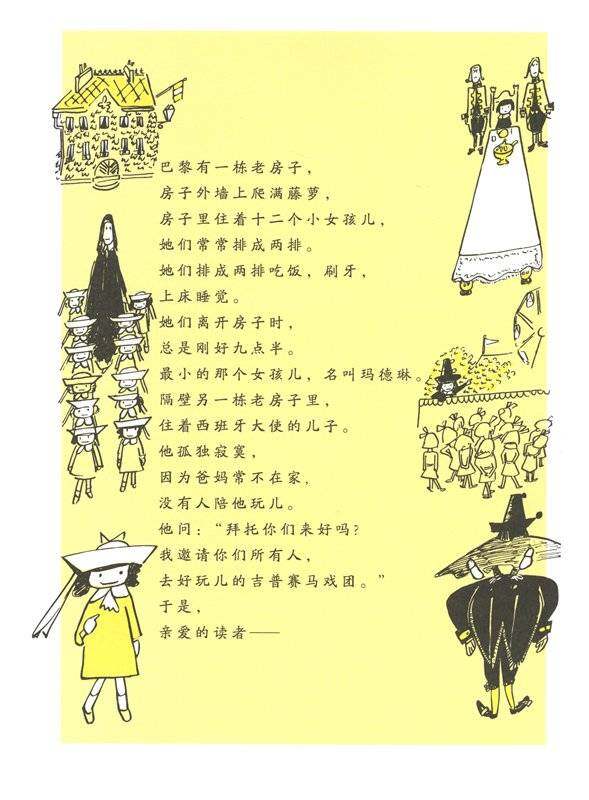 巴黎有一栋老房子，
房子外墙上爬满藤萝，
房子里住着十二个小女孩儿，
她们常常排成两排。
她们排成两排吃饭，刷牙，
上床睡觉。
她们离开房子时，
总是刚好九点半。
最小的那个女孩儿，名叫玛德琳。
隔壁另一栋老房子里，
住着西班牙大使的儿子。
他孤独寂寞，
因为爸妈常不在家，
没有人陪他玩儿。
他问：“拜托你们来好吗？
我邀请你们所有人，
去好玩儿的吉普赛马戏团。”
于是，
亲爱的读者——